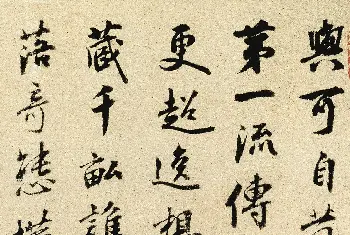 與可自
第一流傳
更超逸想
藏千畝誰
落奇